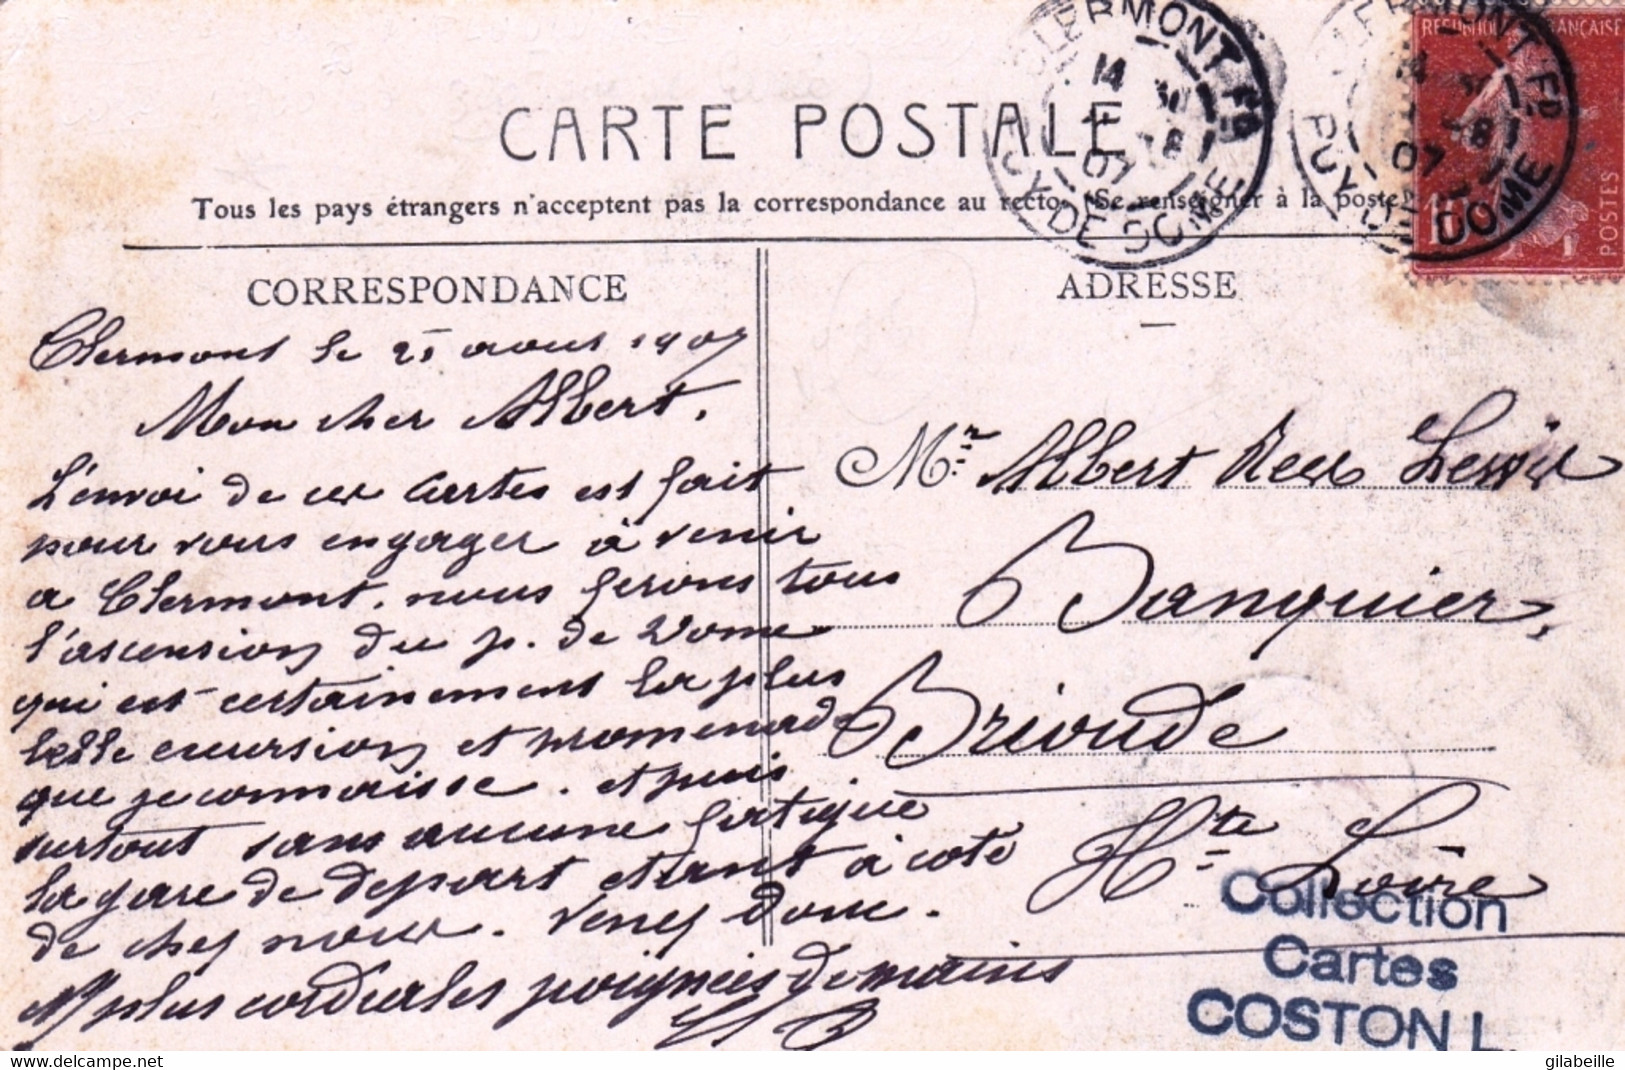 CARTE POSTALE
Tous les pays étrangers n'acceptent pas la correspondance au recto. (Se renseigner à la poste
CLERMONT Fd
14 30
07
PUY DE DOME
CLERMONT Fd
14 30
07
PUY DE DOME
REPUBLIQUE FRANÇAISE
10
POSTES
CORRESPONDANCE
Clermont le 21 aout 1907
Mon cher Albert,
L'envoi de ces cartes est fait
pour vous engager à venir
a Clermont. nous ferons tous
l'ascension du p. de Dome
qui est certainement la plus
belle excursion et promenade
que je connaisse. et puis
surtout sans aucune fatigue
la gare de depart etant à coté
de chez nous. Venez donc.
Mes plus cordiales poignées de mains
ADRESSE
Mr. Albert
Banquier,
Brioude
Hte Loire
Collection
Cartes
COSTON L.
gilabeille